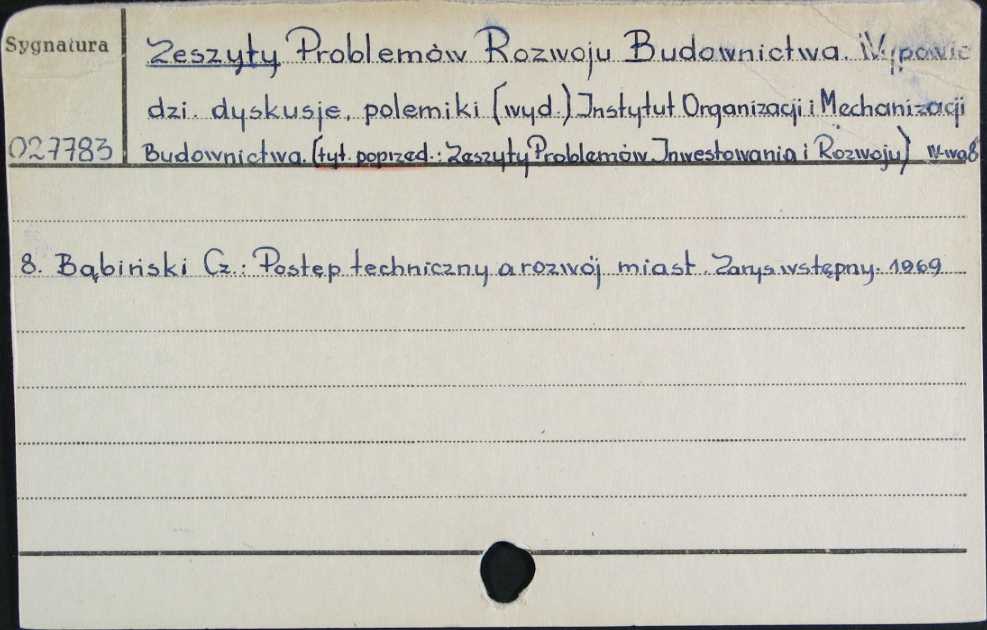 Sygnatura
Zeszyty Problemów Rozwoju Budownictwa. Wypowie
dzi. dyskusje, polemiki (wyd.) Instytut Organizacji i Mechanizacji
027783
Budownictwa. (tyt. poprzed.: Zeszyty Problemów Inwestowania i Rozwoju) W-wa
8. Bąbiński Cz.: Postęp techniczny a rozwój miast. Zarys wstępny. 1969